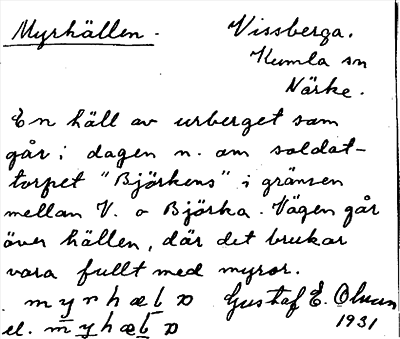 Myrhällen. Vissberga.
Kumla sn
Närke.
En häll av urberget som
går i dagen n. om soldat-
torpet "Björkens" i gränsen
mellan V. o Björka. Vägen går
över hällen, där det brukar
vara fullt med myror.
Gustaf E. Olsson
el.
1931